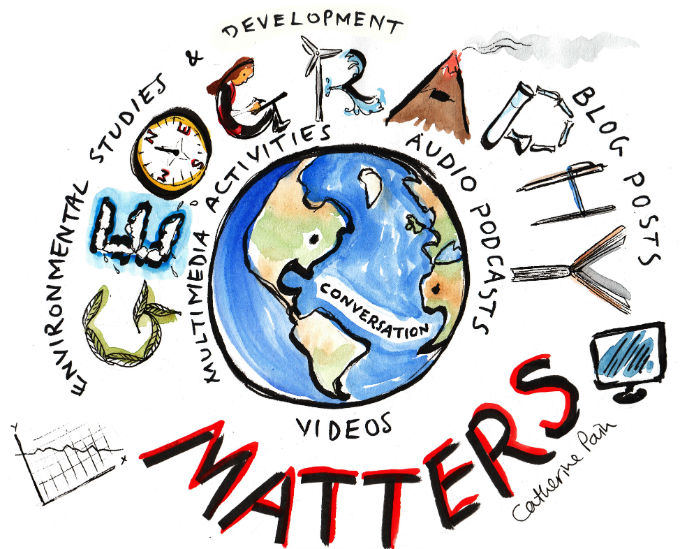 ENVIRONMENTAL STUDIES & DEVELOPMENT
GEOGRAPHY
N E S W
BLOG POSTS
MULTIMEDIA ACTIVITIES
AUDIO PODCASTS
CONVERSATION
VIDEOS
MATTERS
Y
X
Catherine Pain